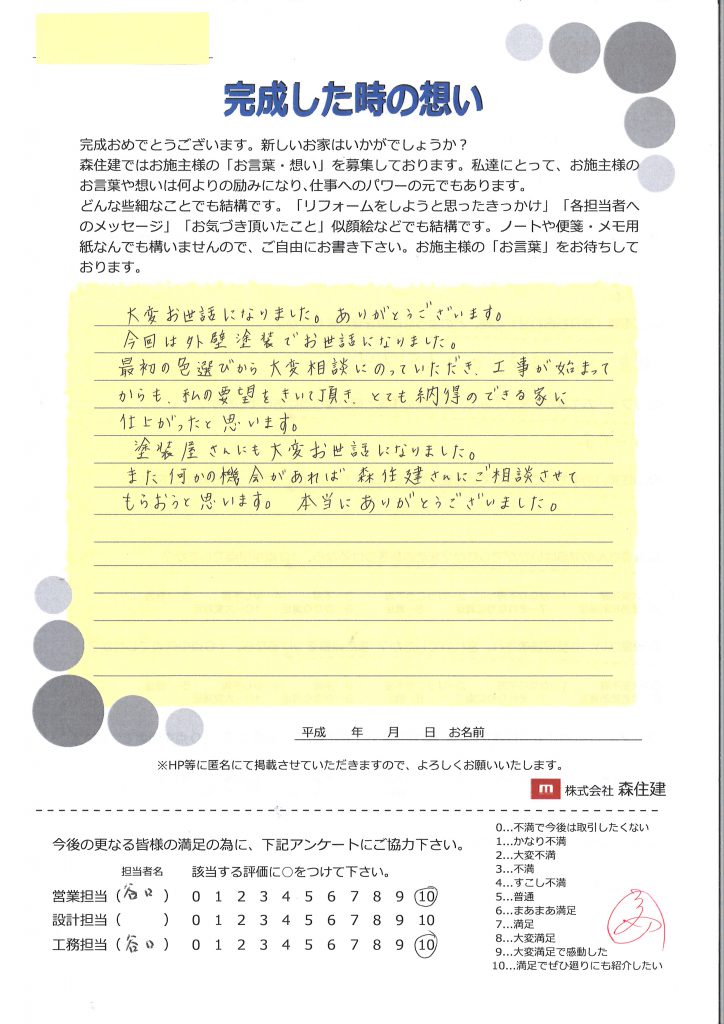 完成した時の想い
完成おめでとうございます。新しいお家はいかがでしょうか？
森住建ではお施主様の「お言葉・想い」を募集しております。私達にとって、お施主様の
お言葉や想いは何よりの励みになり、仕事へのパワーの元でもあります。
どんな些細なことでも結構です。「リフォームをしようと思ったきっかけ」「各担当者へ
のメッセージ」「お気づき頂いたこと」似顔絵などでも結構です。ノートや便箋・メモ用
紙なんでも構いませんので、ご自由にお書き下さい。お施主様の「お言葉」をお待ちして
おります。
大変お世話になりました。ありがとうございます。
今回は外壁塗装でお世話になりました。
最初の色選びから大変相談にのっていただき、工事が始まって
からも、私の要望をきいて頂き、とても納得のできる家に
仕上がったと思います。
塗装屋さんにも大変お世話になりました。
また何かの機会があれば森住建さんにご相談させて
もらおうと思います。 本当にありがとうございました。
平成 年 月 日 お名前
※HP等に匿名にて掲載させていただきますので、よろしくお願いいたします。
m 株式会社 森住建
今後の更なる皆様の満足の為に、下記アンケートにご協力下さい。
担当者名 該当する評価に○をつけて下さい。
営業担当（谷口） 0 1 2 3 4 5 6 7 8 9 10
設計担当（ ） 0 1 2 3 4 5 6 7 8 9 10
工務担当（谷口） 0 1 2 3 4 5 6 7 8 9 10
0…不満で今後は取引したくない
1…かなり不満
2…大変不満
3…不満
4…すこし不満
5…普通
6…まあまあ満足
7…満足
8…大変満足
9…大変満足で感動した
10…満足でぜひ廻りにも紹介したい